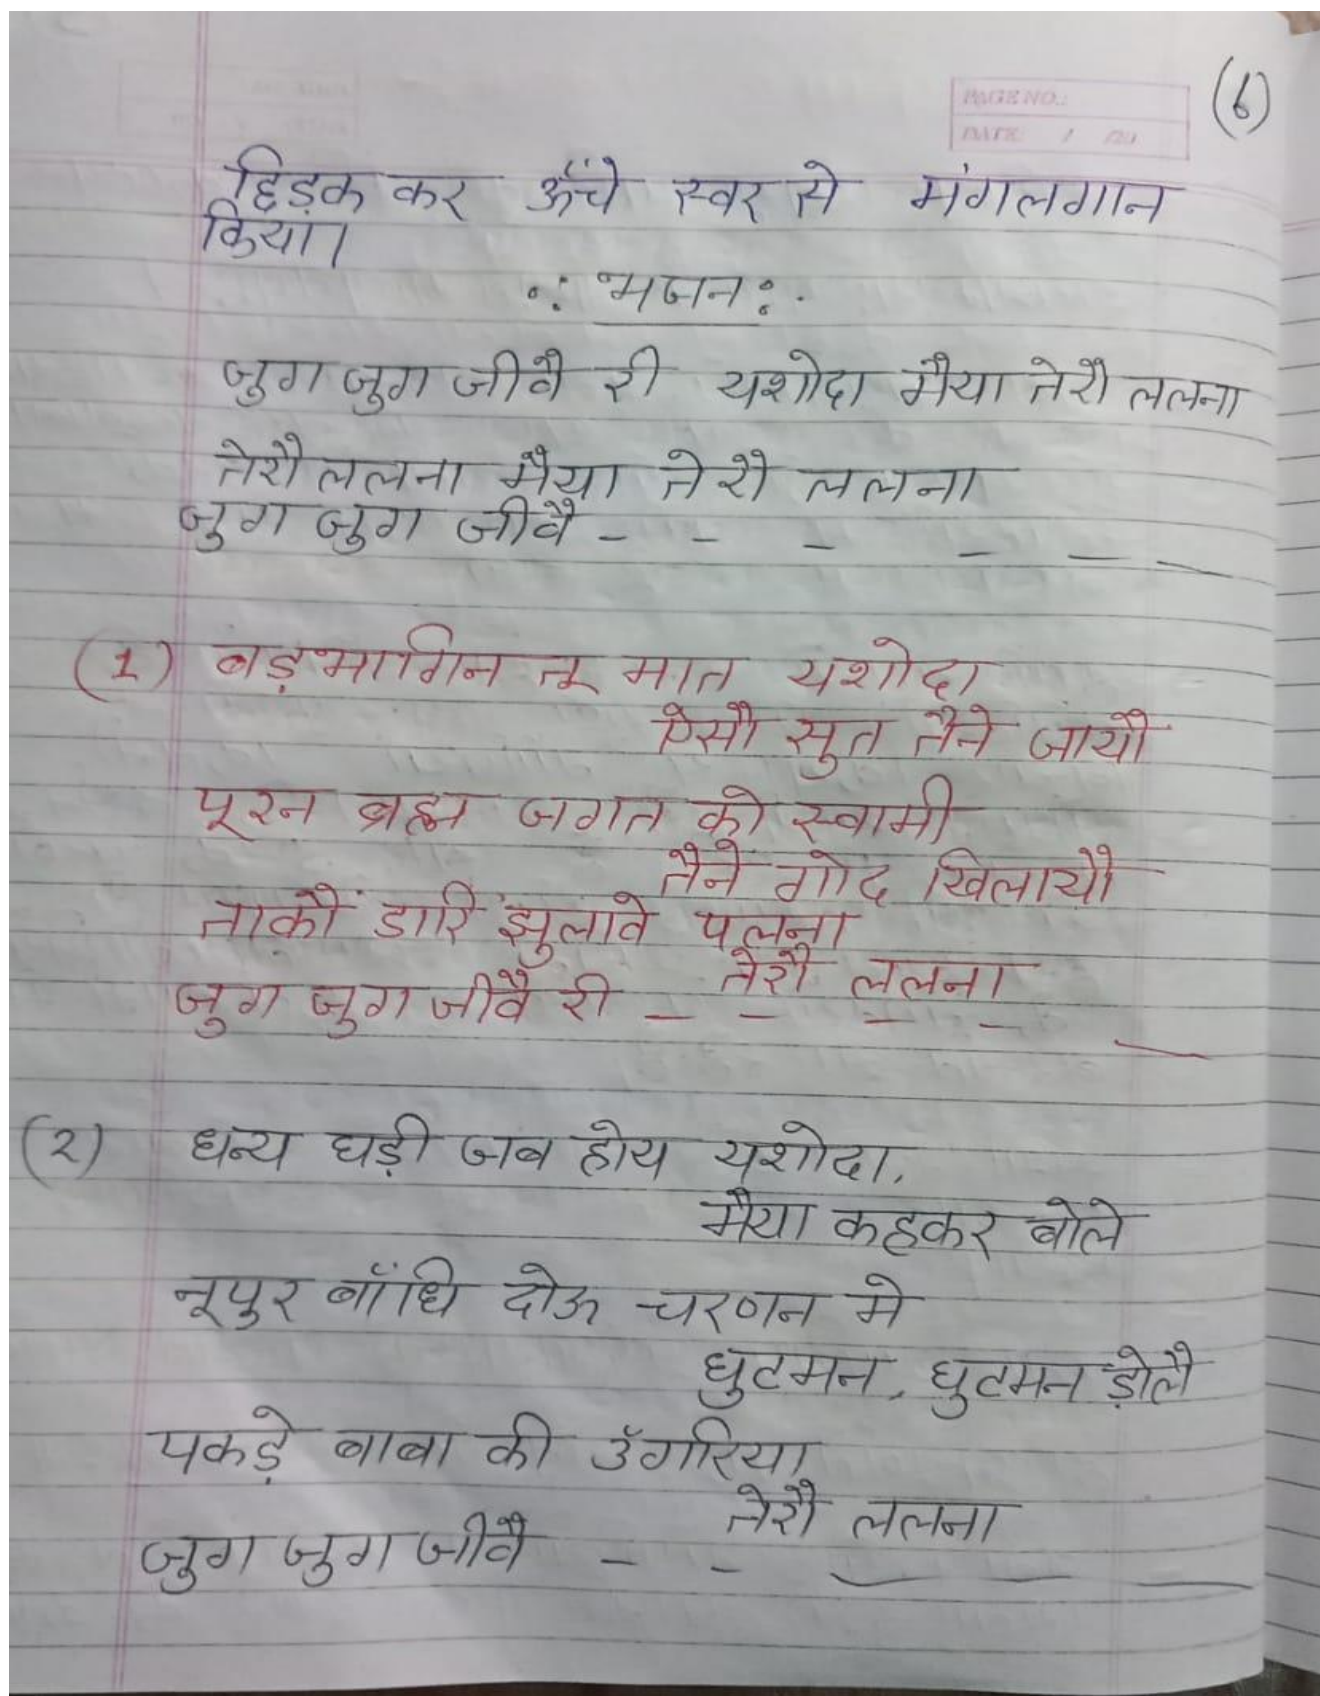 (6)
PAGE NO.:
DATE
छिड़क कर ऊँचे स्वर से मंगलगान
किया।
॰: भजन :॰
जुग जुग जीवै री यशोदा मैया तेरौ ललना
तेरौ ललना मैया तेरौ ललना
जुग जुग जीवै - - - - - -
(1) बड़भागिन तू मात यशोदा
ऐसौ सुत तैने जायौ
पूरन ब्रह्म जगत को स्वामी
तैने गोद खिलायौ
ताकौं डारि झुलावे पलना
तेरौ ललना
जुग जुग जीवै री - - - - -
(2) धन्य घड़ी जब होय यशोदा,
मैया कहकर बोले
नूपुर बाँधि दोऊ चरणन मे
घुटमन, घुटमन ड़ोलै
पकड़े बाबा की उँगरिया
तेरौ ललना
जुग जुग जीवै - - - - -